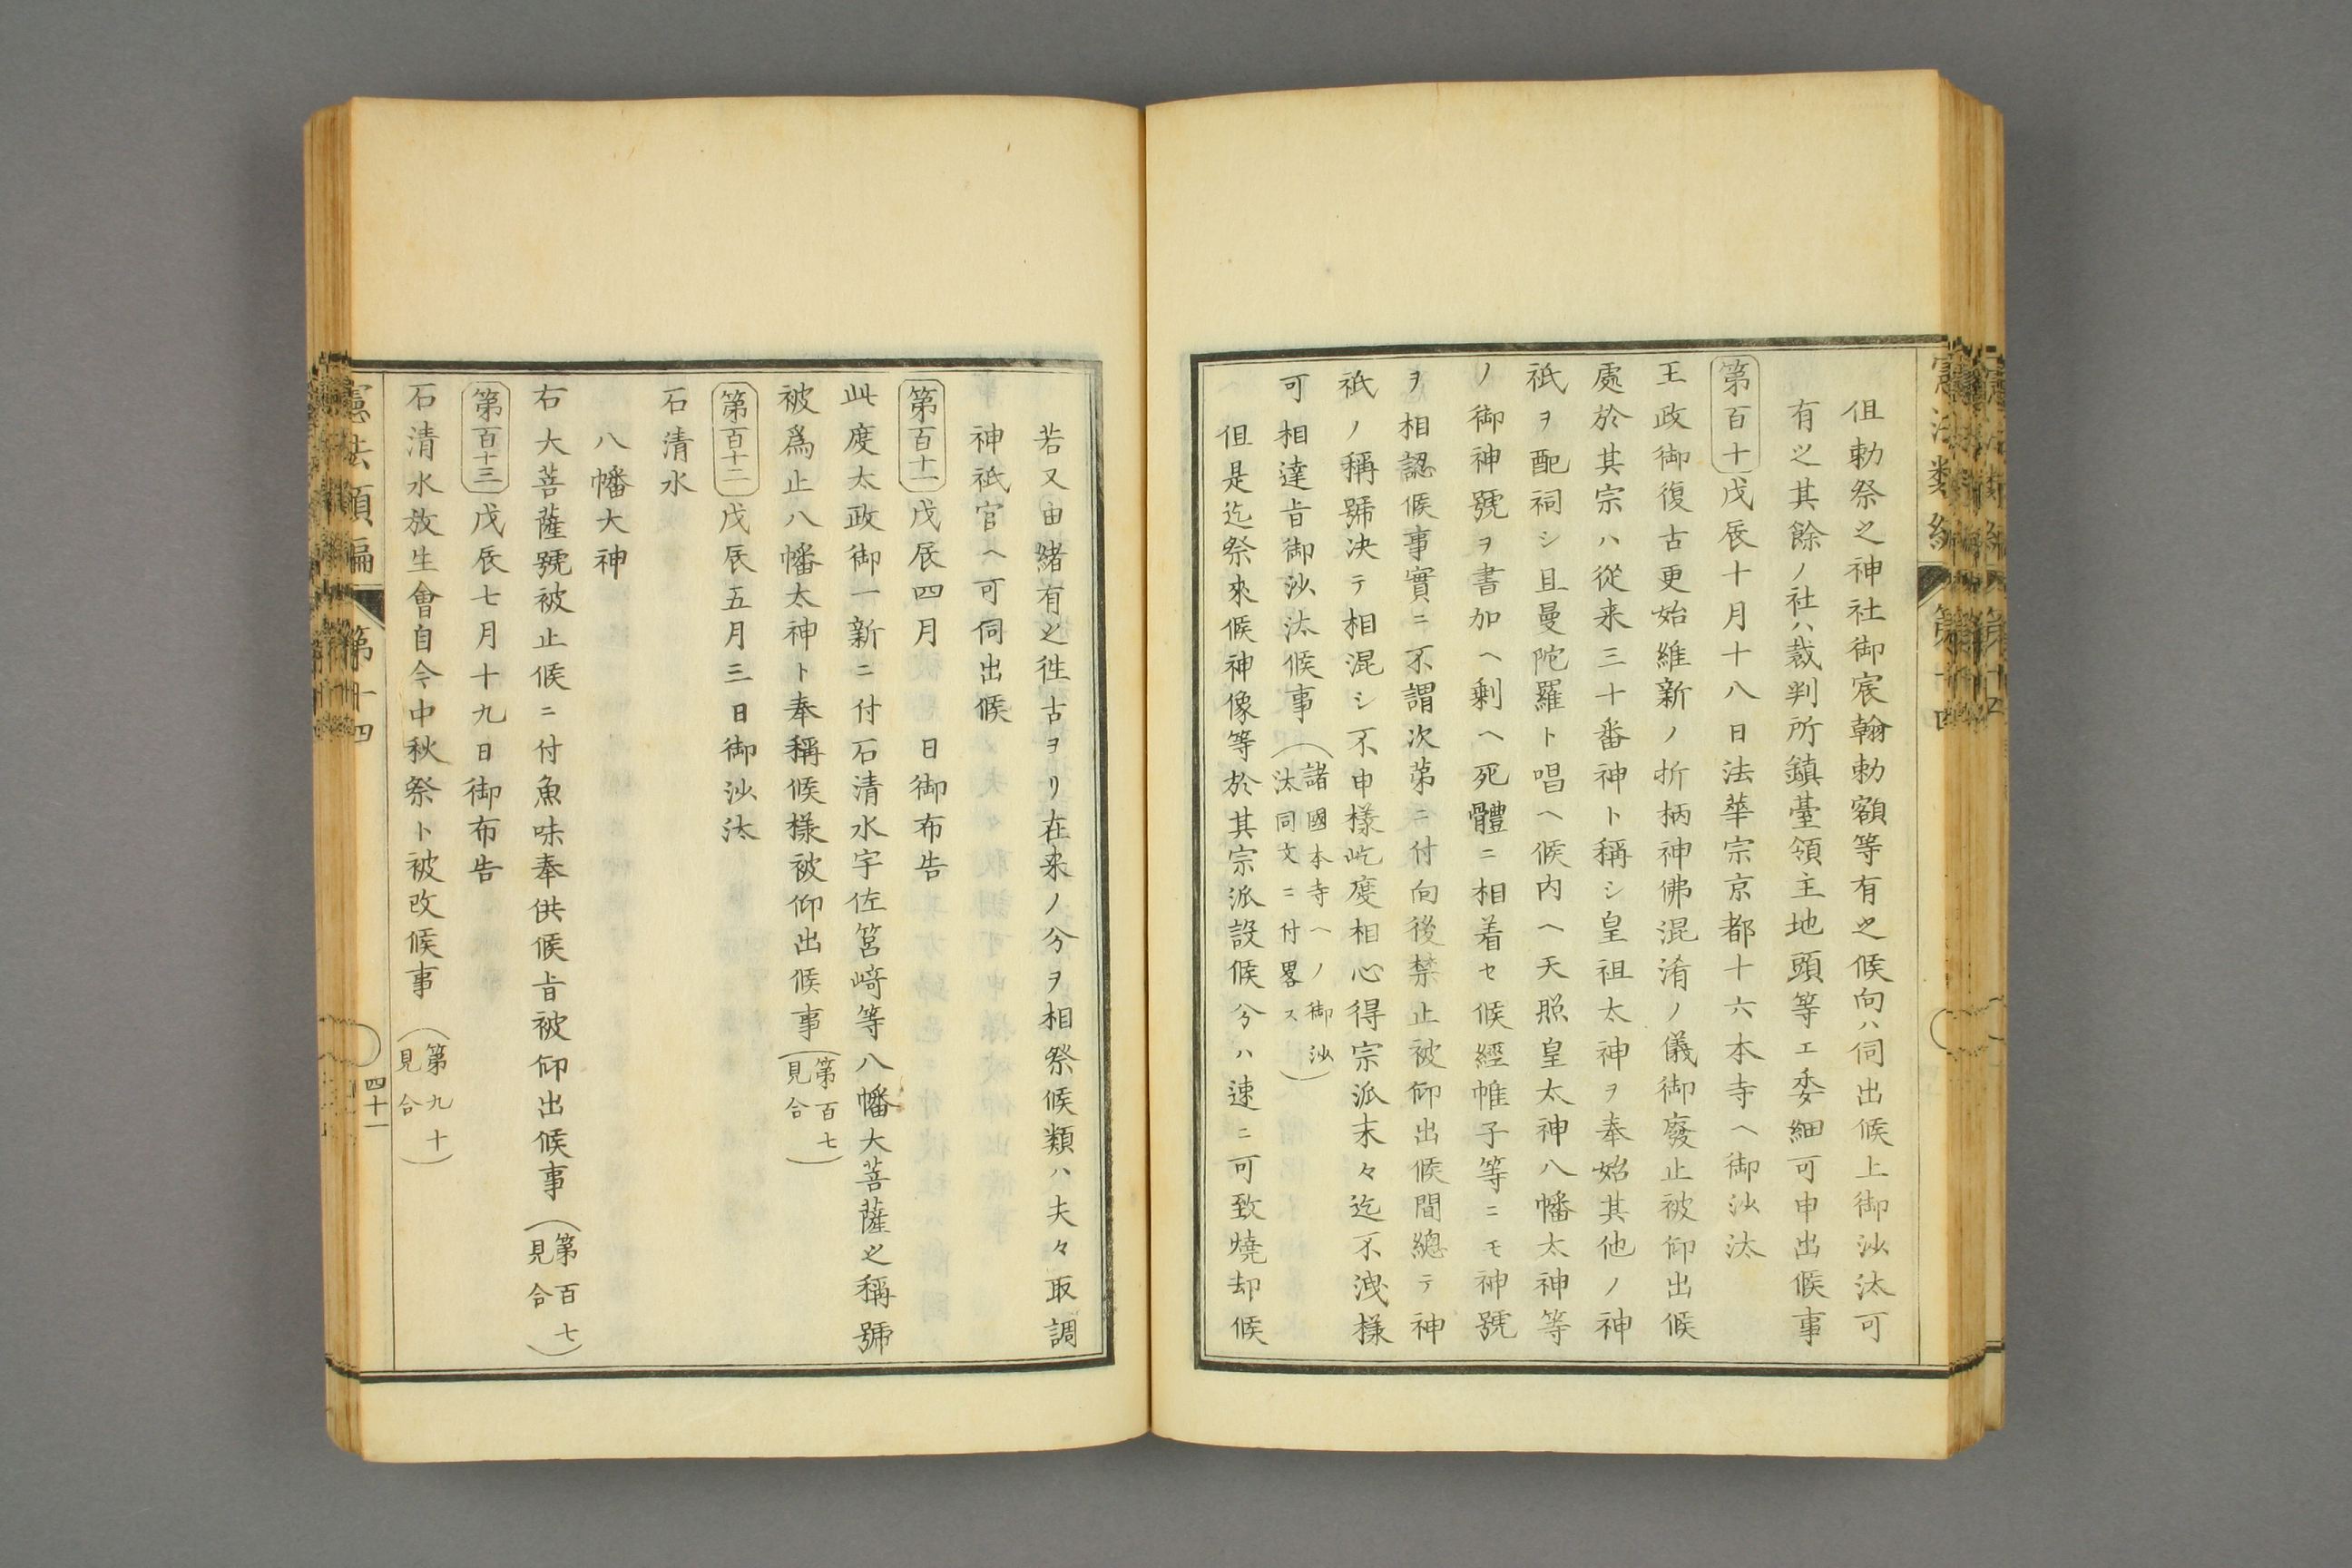 但勅祭之神社御宸翰勅額等有之候向ハ伺出候上御沙汰可
有之其餘ノ社ハ裁判所鎮臺領主地頭等エ委細可申出候事
第百十戊辰十月十八日法華宗京都十六本寺ヘ御沙汰
王政御復古更始維新ノ折柄神佛混淆ノ儀御廢止被仰出候
處於其宗ハ從来三十番神ト稱シ皇祖太神ヲ奉始其他ノ神
祇ヲ配祠シ且曼陀羅ト唱ヘ候内ヘ天照皇太神八幡太神等
ノ御神號ヲ書加ヘ剰ヘ死體ニ相着セ候經帷子等ニモ神號
ヲ相認候事實ニ不謂次第ニ付向後禁止被仰出候間總テ神
祇ノ稱號決テ相混シ不申樣屹度相心得宗派末々迄不洩樣
可相達旨御沙汰候事(諸國本寺ヘノ御沙
汰同文ニ付畧ス)
但是迄祭來候神像等於其宗派設候分ハ速ニ可致燒却候
若又由緒有之徃古ヨリ在来ノ分ヲ相祭候類ハ夫々取調
神祇官ヘ可伺出候
第百十一戊辰四月 日御布告
此度太政御一新ニ付石清水宇佐筥﨑等八幡大菩薩之稱號
被爲止八幡太神ト奉稱候樣被仰出候事(第百七
見合)
第百十二戊辰五月三日御沙汰
石清水
八幡大神
右大菩薩號被止候ニ付魚味奉供候旨被仰出候事(第百七
見合)
第百十三戊辰七月十九日御布告
石清水放生會自今中秋祭ト被改候事(第九十
見合)
憲法類編 第十四
四十一